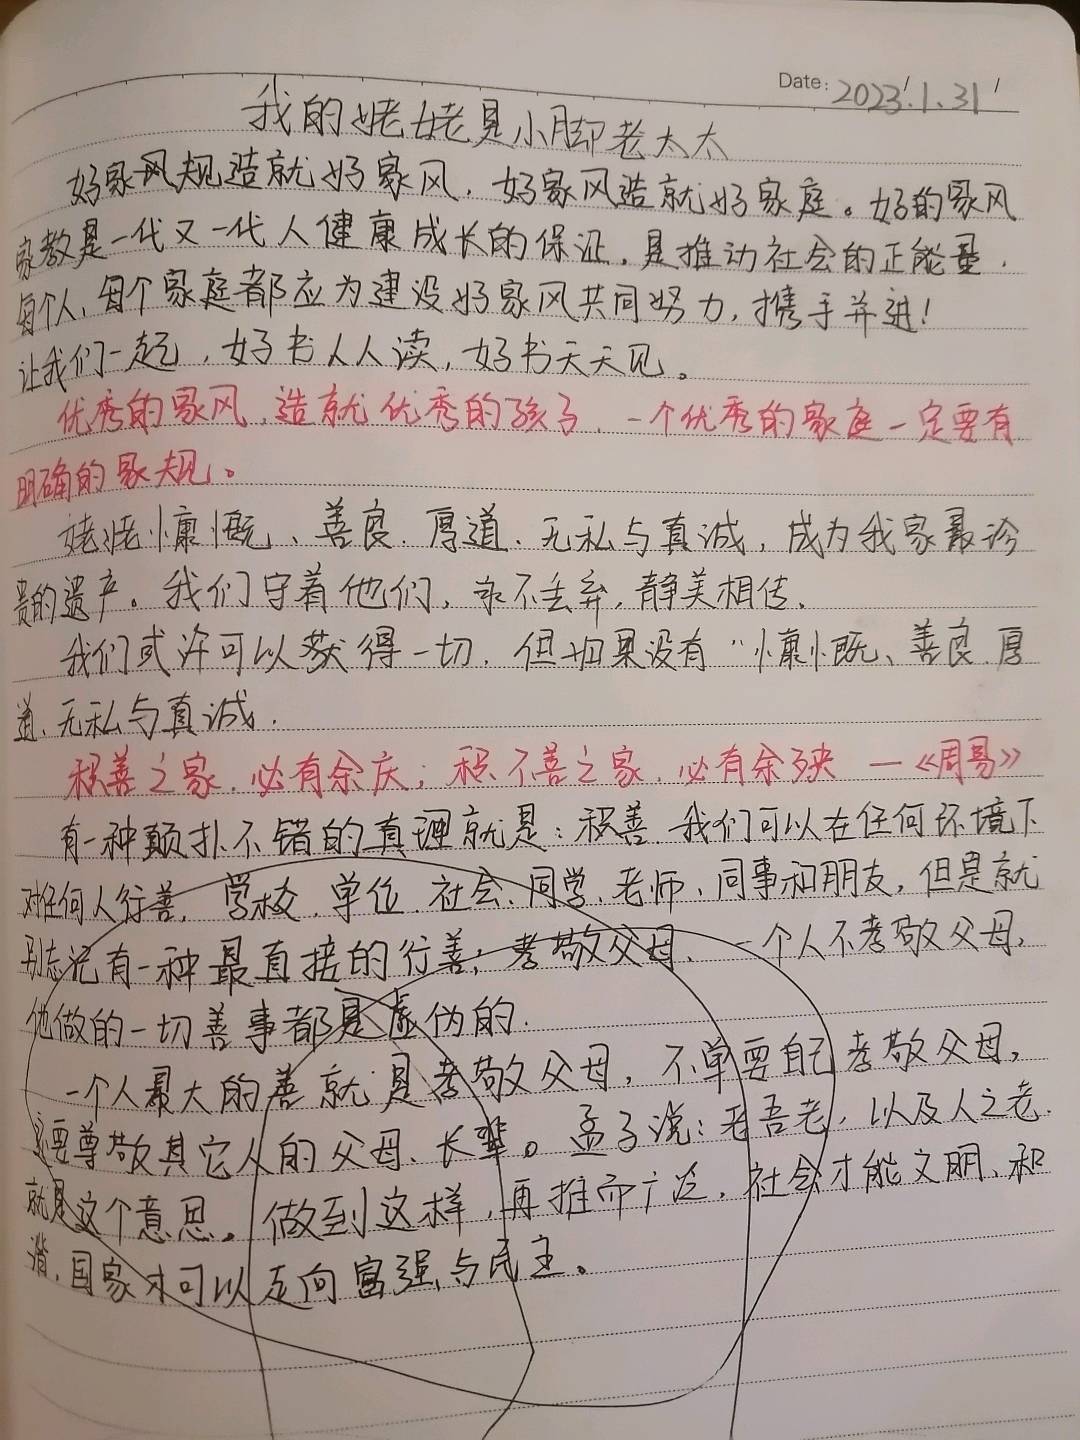 Date: 2023.1.31
我的姥姥是小脚老太太
好家风规造就好家风，好家风造就好家庭。好的家风
家教是一代又一代人健康成长的保证，是推动社会的正能量，
每个人，每个家庭都应为建设好家风共同努力，携手并进！
让我们一起，好书人人读，好书天天见。
优秀的家风，造就优秀的孩子，一个优秀的家庭一定要有
明确的家规。
姥姥慷慨、善良、厚道、无私与真诚，成为我家最珍
贵的遗产。我们守着他们，永不丢弃，静美相传、
我们或许可以获得一切，但如果没有“慷慨、善良、厚
道、无私与真诚．
积善之家，必有余庆；积不善之家，必有余殃 —《周易》
有一种颠扑不错的真理就是：积善，我们可以在任何环境下
对任何人行善，学校、单位、社会、同学、老师、同事和朋友，但是就
别忘记有一种最直接的行善；孝敬父母、一个人不孝敬父母，
他做的一切善事都是虚伪的．
一个人最大的善就是孝敬父母，不单要自己孝敬父母，
还要尊敬其它人的父母、长辈。孟子说：老吾老，以及人之老．
就是这个意思。做到这样，再推而广之，社会才能文明、和
谐，国家才可以走向富强与民主。